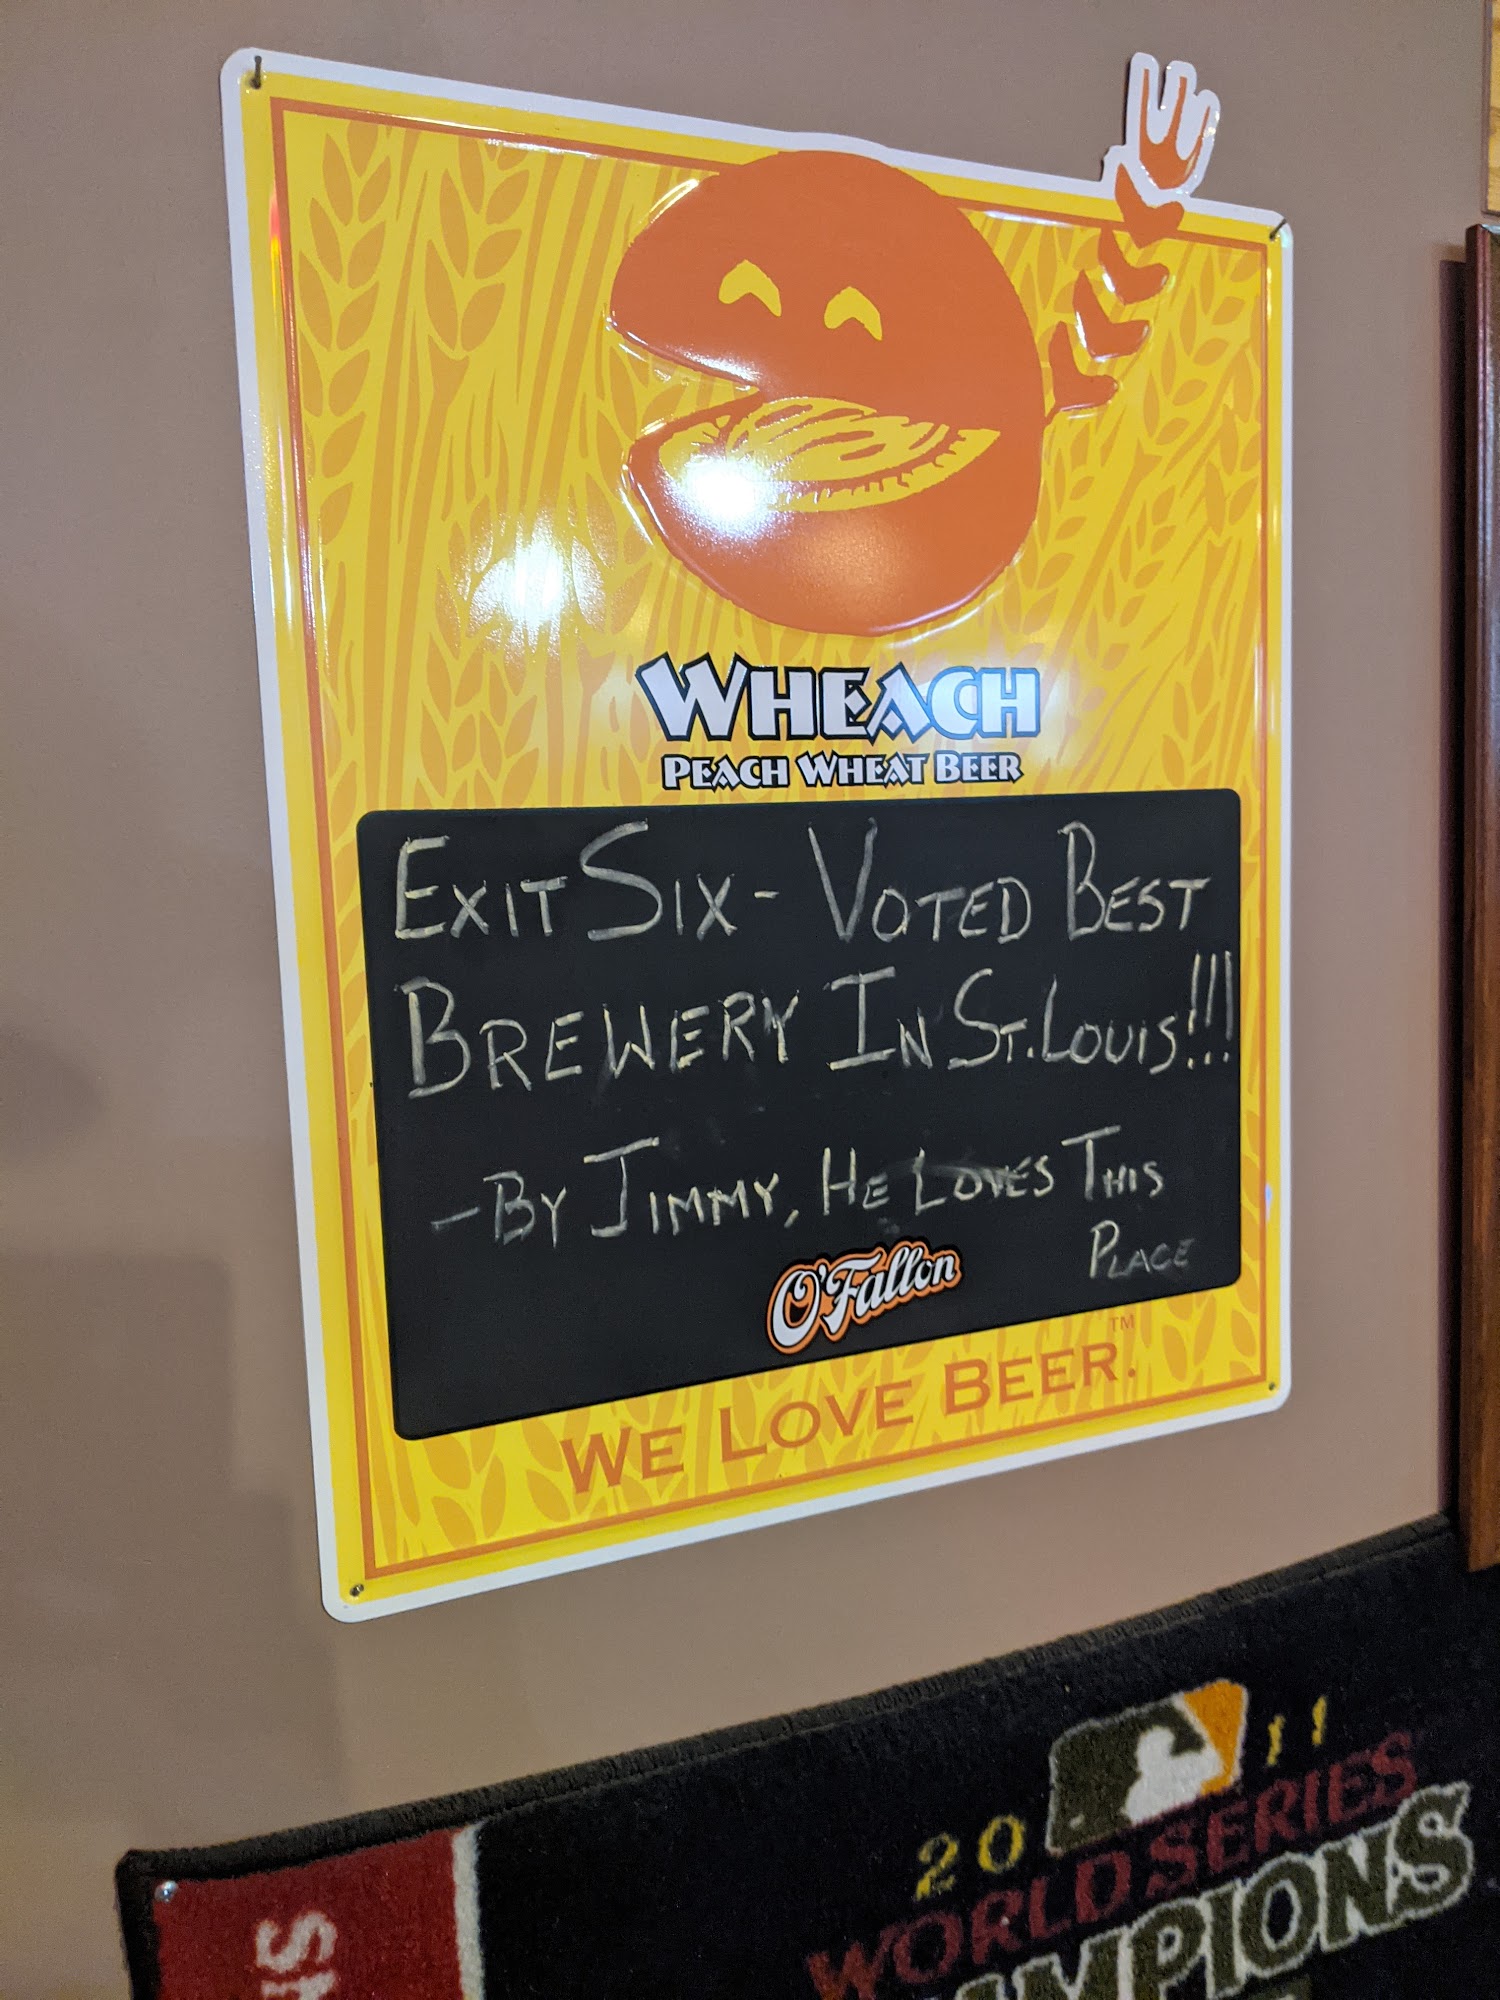 WHEACH
PEACH WHEAT BEER
EXIT SIX - VOTED BEST
BREWERY IN ST. LOUIS!!!
- BY JIMMY, HE LOVES THIS
PLACE
O'Fallon
WE LOVE BEER.™
20 11
WORLD SERIES